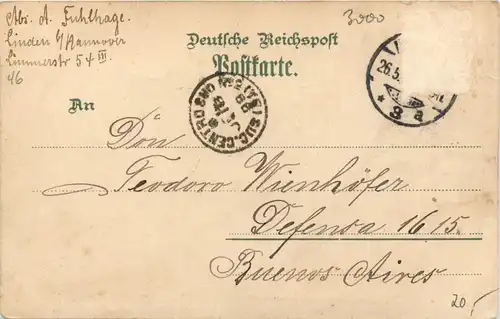 Abs. A. Fuhlhage.
Linden b/Hannover
Limmerstr 54 III
46
3000
Deutsche Reichspost
Postkarte.
An
SUC. CENTRO
26.5.
* 3 a
Don
Teodoro Wienhöfer
Defensa 1615.
Buenos Aires
20,